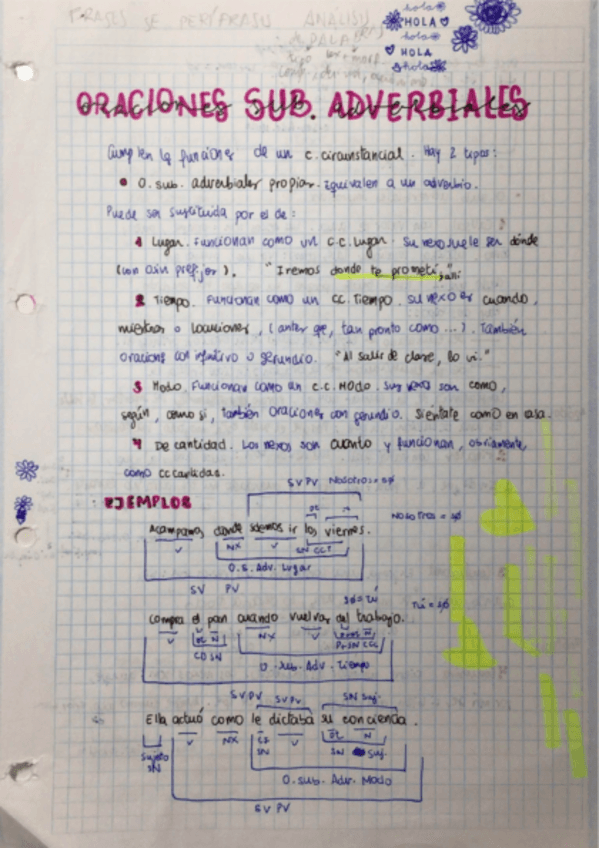 FRASES DE PERÍFRASIS ANÁLISIS
hola
HOLA
hola
HOLA
hola
ORACIONES SUB. ADVERBIALES
Cumplen la funciones de un c. circunstancial. Hay 2 tipos:
• O. sub. adverbiales propias. Equivalen a un adverbio.
Puede ser sustituida por el de:
1 Lugar. Funcionan como un C.C. Lugar. Su nexo suele ser dónde
(con o sin prefijos). "Iremos donde te prometí", allí
2 Tiempo. Funcionan como un CC. Tiempo. Su nexo es cuando,
mientras o locuciones, (antes que, tan pronto como ...). También
oracions con infinitivo o gerundio. "Al salir de clase, lo vi."
3 Modo. Funcionan como un C.C. Modo. Sus nexos son como,
según, como si, también oraciones con gerundio. Siéntate como en casa.
4 De cantidad. Los nexos son cuanto y funcionan, obviamente
como CC Cantidas.
SVPV Nosotros = sø
EJEMPLOS
Nosotros = sø
Acampamos donde solemos ir los viernes.
V NX V SN CCT
O.S. Adv. Lugar
SV PV
sø = tú
Tú = sø
Compra el pan cuando vuelvas del trabajo.
V DE N NX V N
CD SN PrSN CCL
O. Sub. Adv. Tiempo
SVPV SVPV SN Suj.
Ella actuó como le dictaba su conciencia.
Sujeto V NX CI V DE N
SN SN SN Suj.
O. sub. Adv. Modo
SV PV